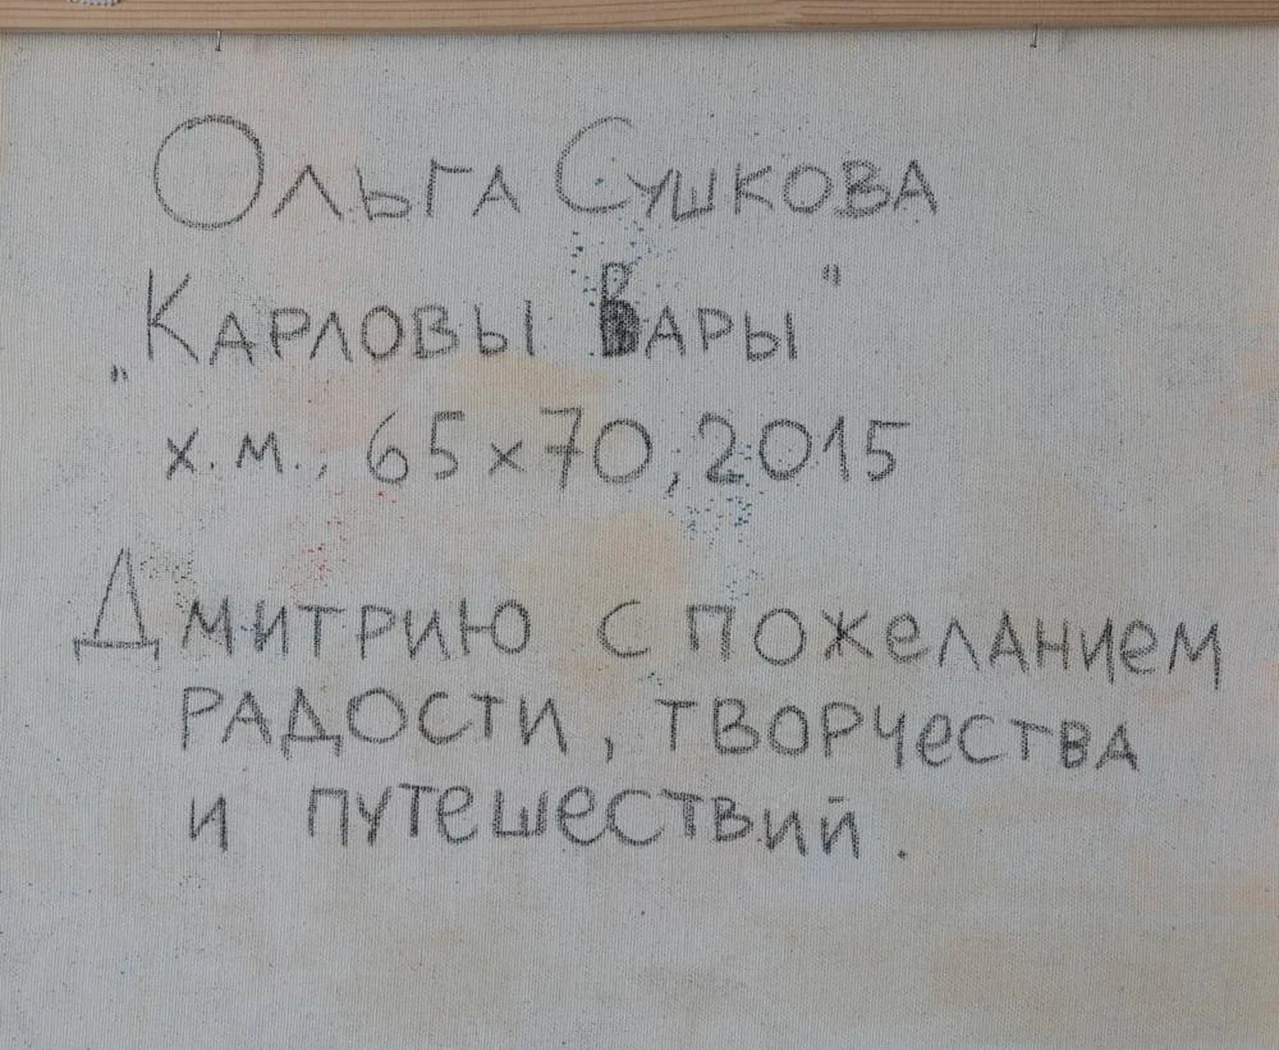 Ольга Сушкова
„Карловы Вары"
х.м., 65х70, 2015
Дмитрию с пожеланием
радости, творчества
и путешествий.